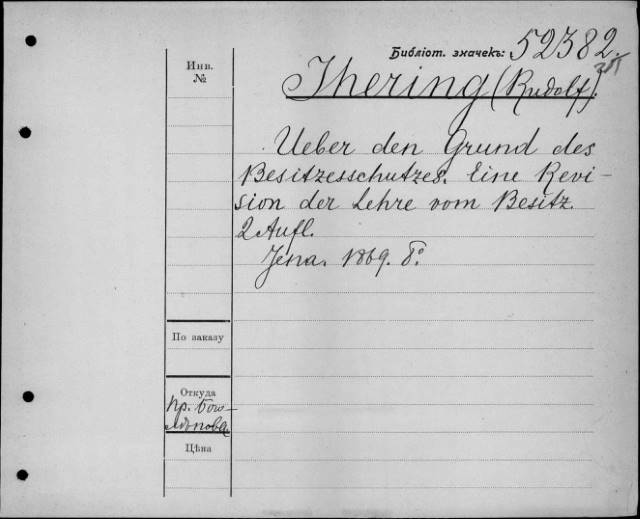 Библіот. значекъ: 52382.
Инв.
№
Jhering (Rudolf)
Ueber den Grund des
Besitzesschutzes. Eine Revi-
sion der Lehre vom Besitz.
2 Aufl.
Jena. 1869. 8º.
По заказу
Откуда
Пр.
Цѣна